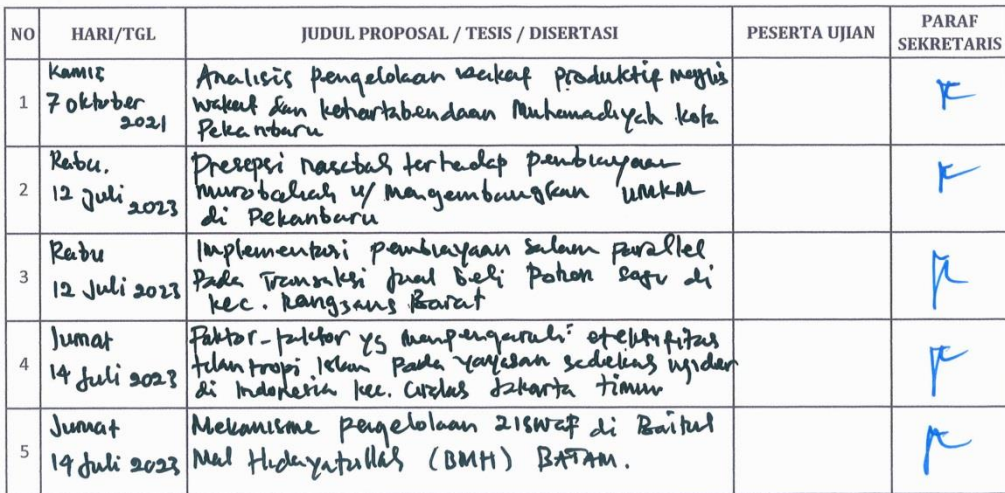 NO HARI/TGL JUDUL PROPOSAL / TESIS / DISERTASI PESERTA UJIAN PARAF SEKRETARIS
1
Kamis
7 Oktober
2021
Analisis pengelolaan wakaf produktif majlis
wakaf dan kehartabendaan Muhamadiyah kota
Pekanbaru
2
Rabu.
12 Juli 2023
Presepsi nasabah terhadap pembiayaan
murobahah u/ mengembangkan UMKM
di Pekanbaru
3
Rabu
12 Juli 2023
Implementasi pembiayaan salam parallel
Pada Transaksi jual beli Pohon sagu di
kec. Rangsang Barat
4
Jumat
14 Juli 2023
Faktor-faktor yg mempengaruhi efektifitas
filantropi Islam Pada Yayasan sedekah
di Indonesia kec. Ciracas Jakarta timur
5
Jumat
14 Juli 2023
Mekanisme pengelolaan ZISWAF di Baitul
Mal Hidayatullah (BMH) BATAM.